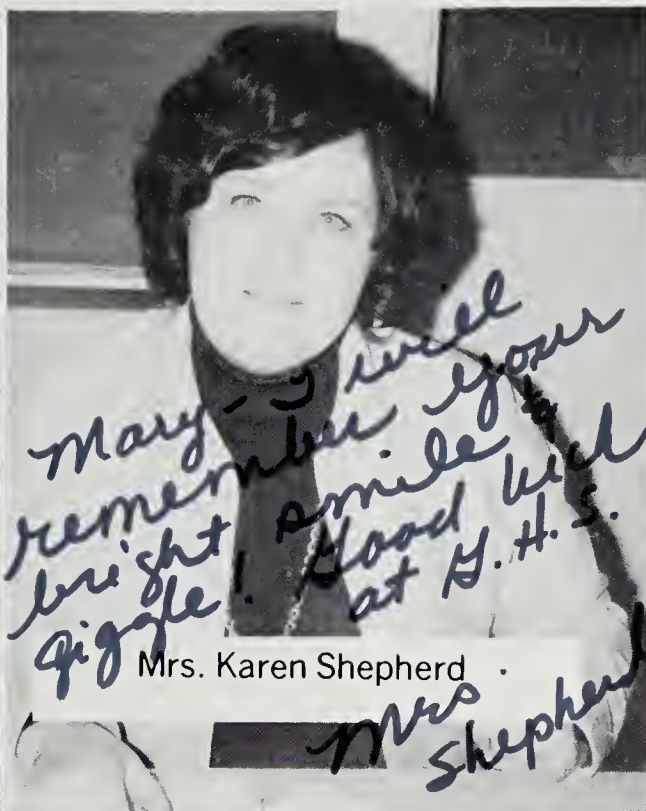 Mary - I will
remember your
bright smile &
giggle! Good luck
at G.H.S.
Mrs. Karen Shepherd
Mrs.
Shepherd